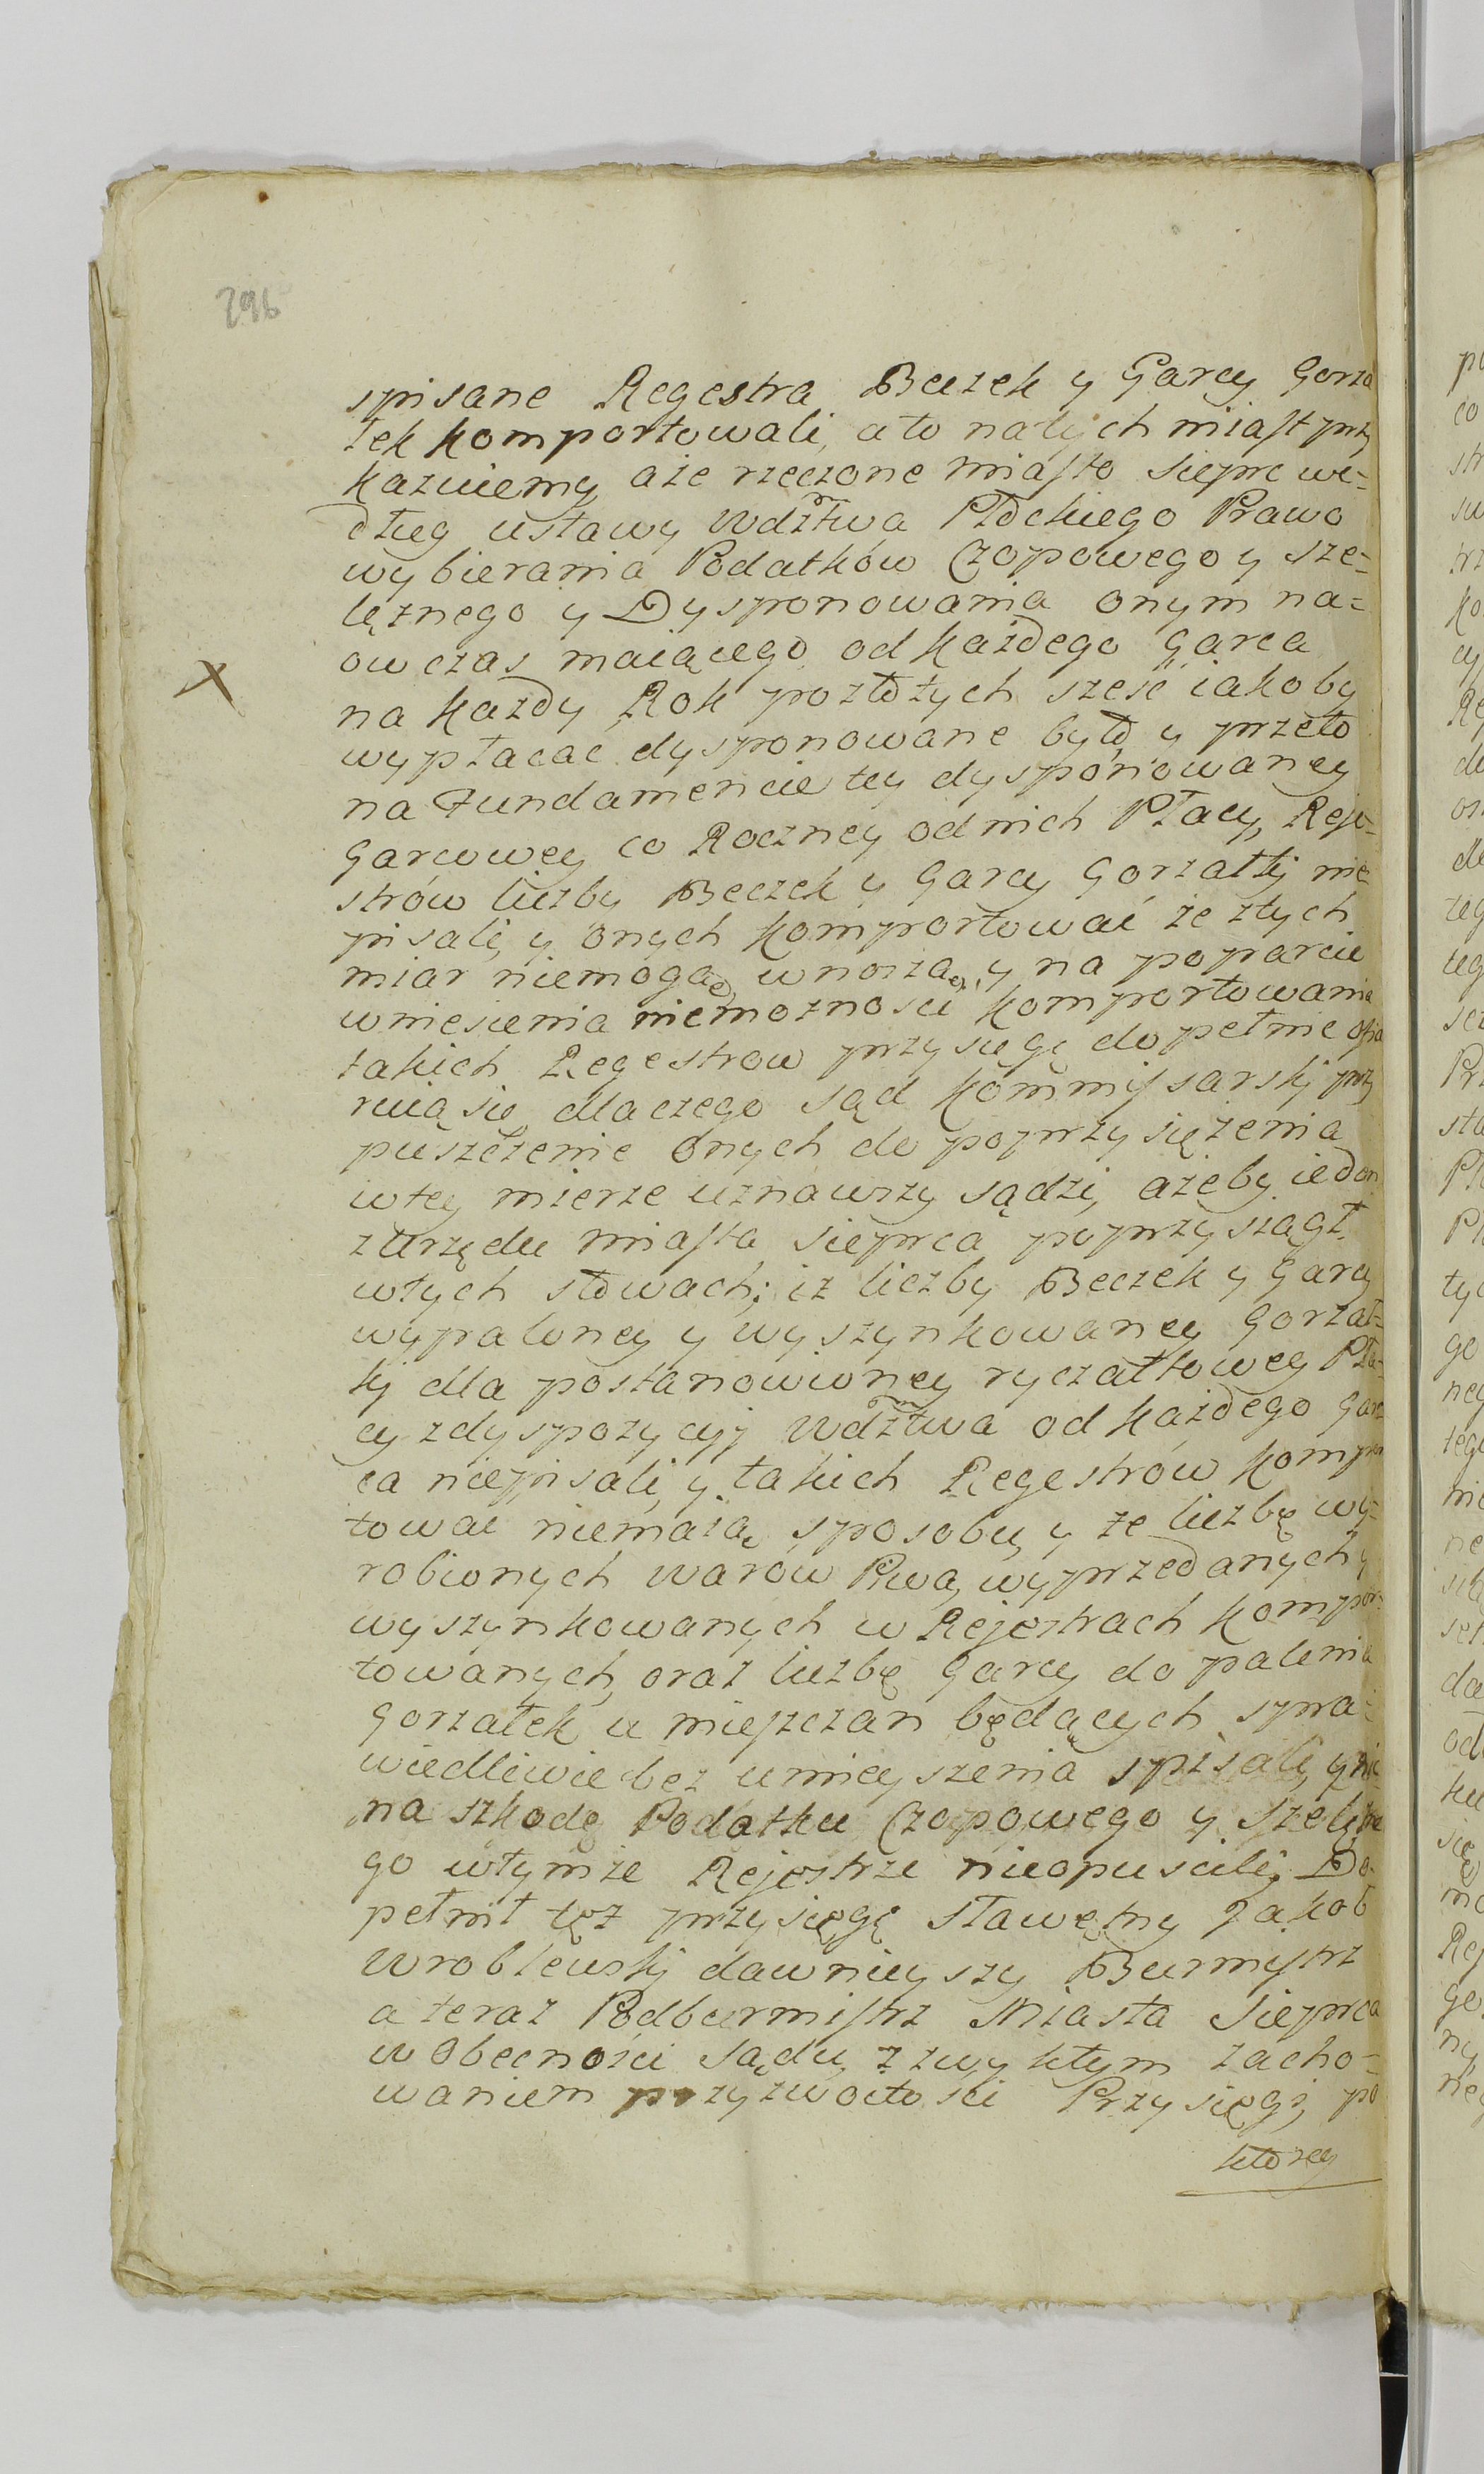 296
spisane Regestra Beczek y Garcy Gorza
łek komportowali, a to natychmiast przy
kazuiemy, aże rzeczone miasto Sieprc we=
dług ustawy Wdztwa Płockiego Prawo
wybierania Podatków Czopowego y sze=
lężnego y Dysponowania onym na=
ow czas maiącego od każdego garca
na każdy Rok po złotych sześć iakoby
wypłacac dysponowane było y przeto
na Fundamencie tey dysponowaney
Garcowey co Roczney od nich Płacy, Reje=
strów liczby Beczek y Garcy Gorzałki nie
pisali, y onych komportować że z tych
miar niemogą, wnoszą, y na poparcie
wniesienia niemożności komportowania
takich Regestrow przysięgę dopełnić ofia
ruią się, dlaczego Sąd Kommissarski przy
puszczenie onych do poprzysiężenia
w tey mierze uznawszy sądzi, ażeby ieden
z Urzędu miasta Sieprca poprzysiągł
w tych słowach: iż liczby Beczek y Garcy
wypaloney y wyszynkowaney Gorzał=
ki dla postanowioney ryczałtowey Pła=
cy z dyspozycyi Wdztwa od każdego Gar
ca niepisali, y takich Regestrów kompor
tować niemaią sposobu, y że liczbę wy=
robionych warów Piwa, wyprzedanych y
wyszynkowanych w Rejestrach kompor=
towanych, oraz liczbę Garcy do palenia
Gorzałek u mieszczan będących spra=
wiedliwie bez umieyszenia spisali, y nic
na szkodę Podatku Czopowego y Szelężne
go w tymże Rejestrze nieopuscili, Do=
pełnił też przysięgę Sławętny Jakob
Wroblewski dawnieyszy Burmistrz
a teraz Podburmistrz Miasta Sieprca
w Obecności Sądu, z zwykłym zacho=
waniem przyzwoitości Przysięgi, po
ktorey